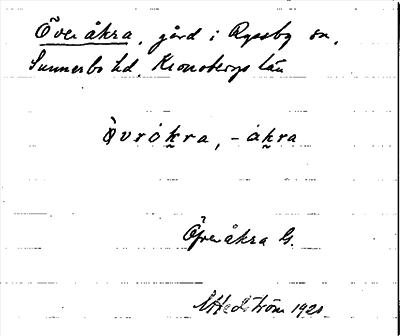 Överåkra, gård i Ryssby sn,
Sunnerbo hd, Kronobergs län
Övrȯkra, -åkra
Öfveråkra G.
Hedström 1921